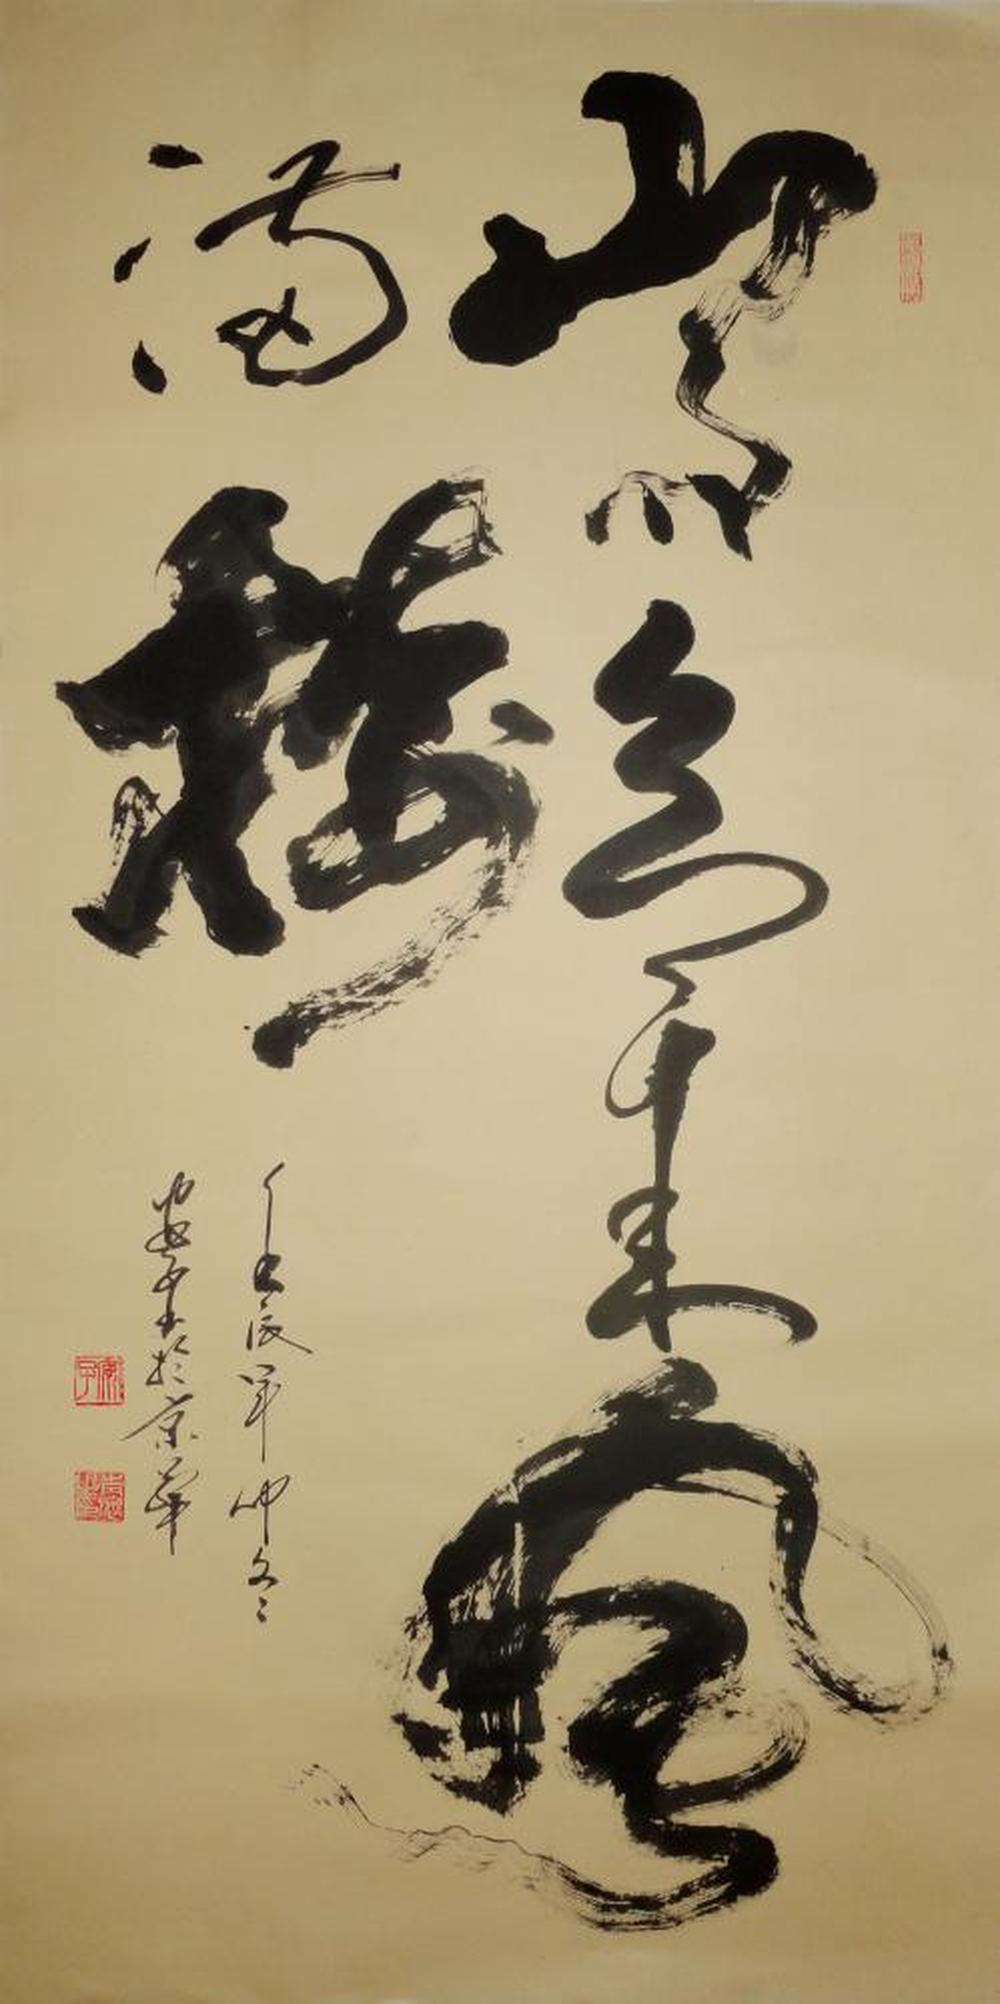 山雨欲来風
滿樓
壬辰年仲冬
書於京華